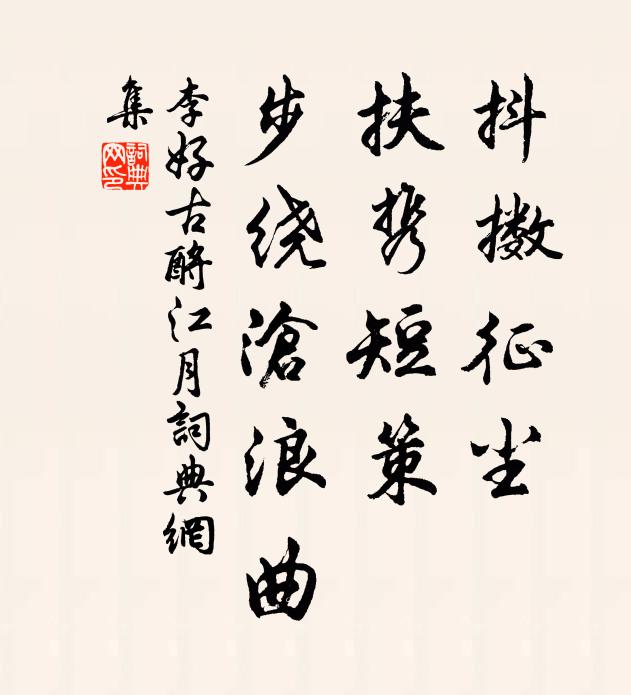 抖擞征尘
扶携短策
步绕滄浪曲
李好古酹江月詞典網
集
詞典网印